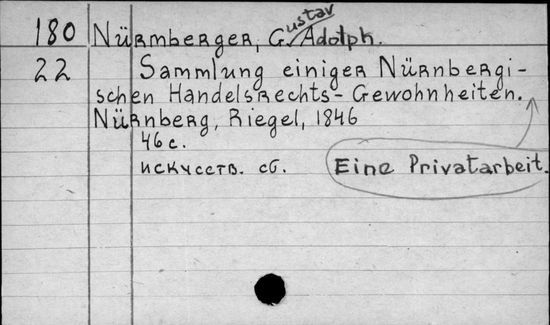 180 Nürmberger, Gustav Adolph.
22 Sammlung einiger Nürnbergi-
schen Handelsrechts-Gewohnheiten.
Nürnberg, Riegel, 1846
46 с.
искусств. сб.
Eine Privatarbeit.